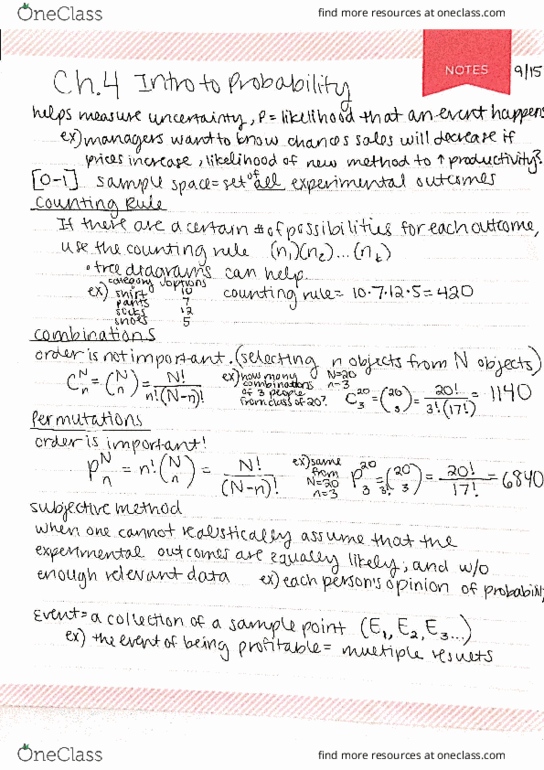 OneClass
find more resources at oneclass.com
NOTES
9/15
Ch.4 Intro to Probability
helps measure uncertainty, P = likelihood that an event happens
ex) managers want to know chances sales will decrease if
prices increase, likelihood of new method to ↑ productivity?
[0-1] sample space = set of all experimental outcomes
Counting Rule
If there are a certain # of possibilities for each outcome,
use the counting rule (n₁)(n₂)...(nₖ)
• tree diagrams can help.
ex) category options
shirt 10
pants 7
socks 12
shoes 5
counting rule = 10·7·12·5 = 420
combinations
order is not important. (selecting n objects from N objects)
C^N_n = (N n) = N! / n!(N-n)!
ex) how many combinations of 3 people from class of 20?
N=20
n=3
C^20_3 = (20 3) = 20! / 3!(17!) = 1140
Permutations
order is important!
P^N_n = n! (N n) = N! / (N-n)!
ex) same from N=20 n=3
P^20_3 = 3! (20 3) = 20! / 17! = 6840
subjective method
when one cannot realistically assume that the
experimental outcomes are equally likely, and w/o
enough relevant data ex) each person's opinion of
Event = a collection of a sample point (E₁, E₂, E₃...)
ex) the event of being profitable = multiple results
OneClass
find more resources at oneclass.com